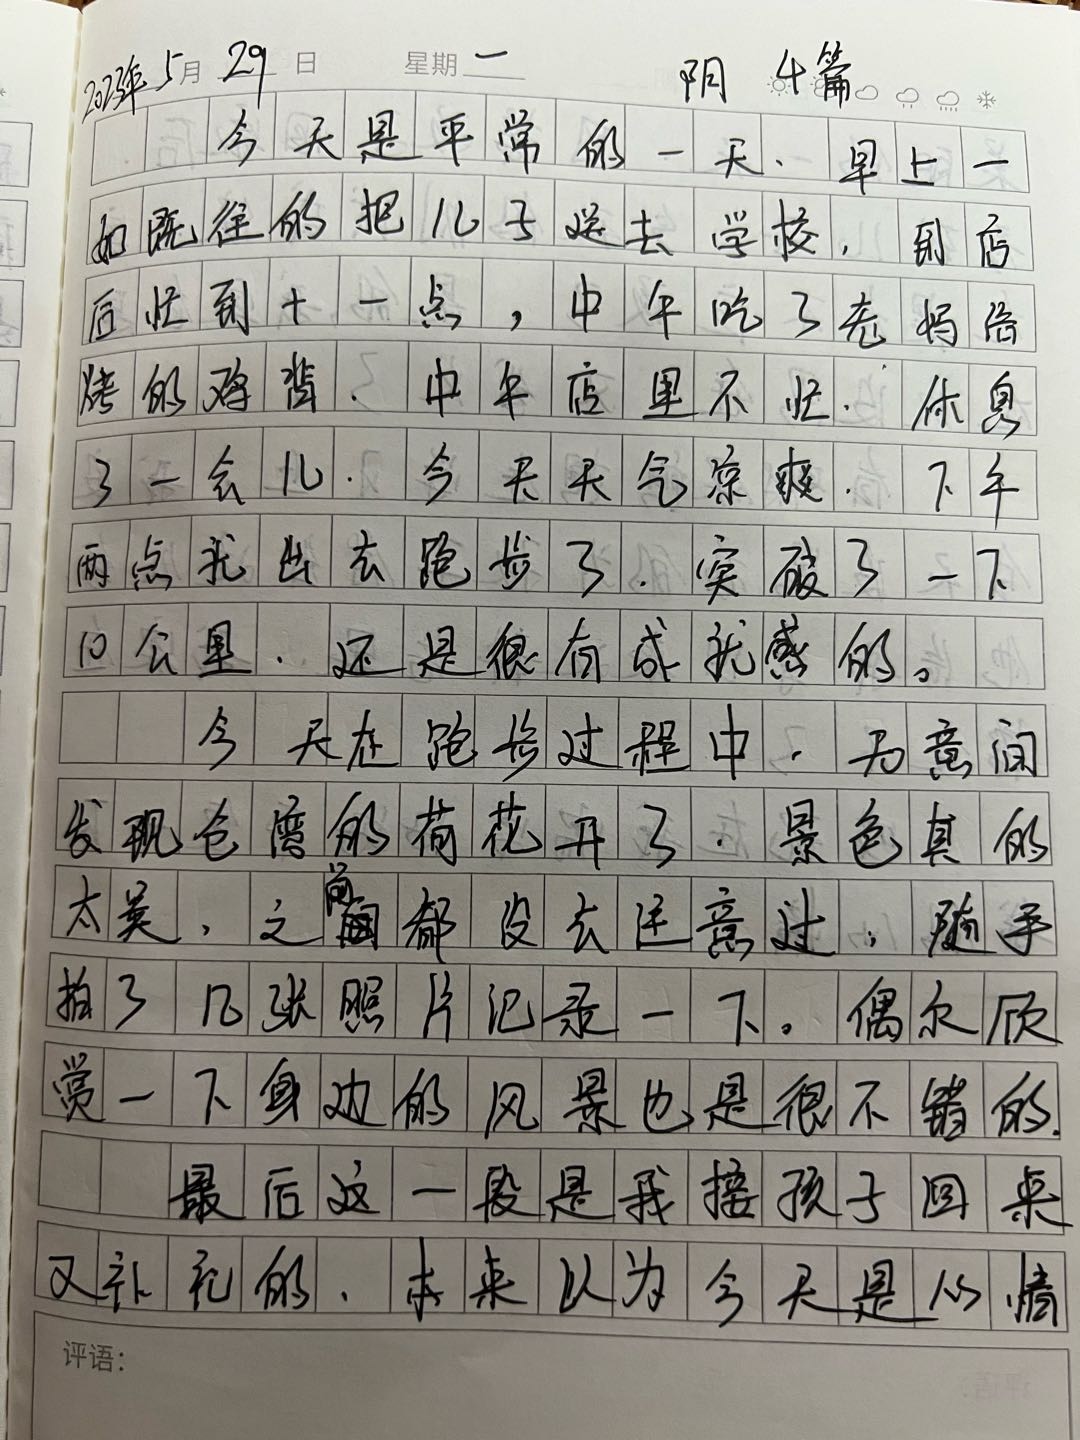 2023年5月29日 星期一 阴 4篇
今天是平常的一天.早上一
如既往的把儿子送去学校,到店
后忙到十一点,中午吃了老妈给
烤的鸡背.中午店里不忙.休息
了一会儿.今天天气凉爽.下午
两点我出去跑步了.突破了一下
10公里.还是很有成就感的。
今天在跑步过程中.无意间
发现仓湾的荷花开了.景色真的
太美,之前都没去注意过,随手
拍了几张照片记录一下。偶尔欣
赏一下身边的风景也是很不错的.
最后这一段是我接孩子回来
又补礼的.本来以为今天是心情
评语: